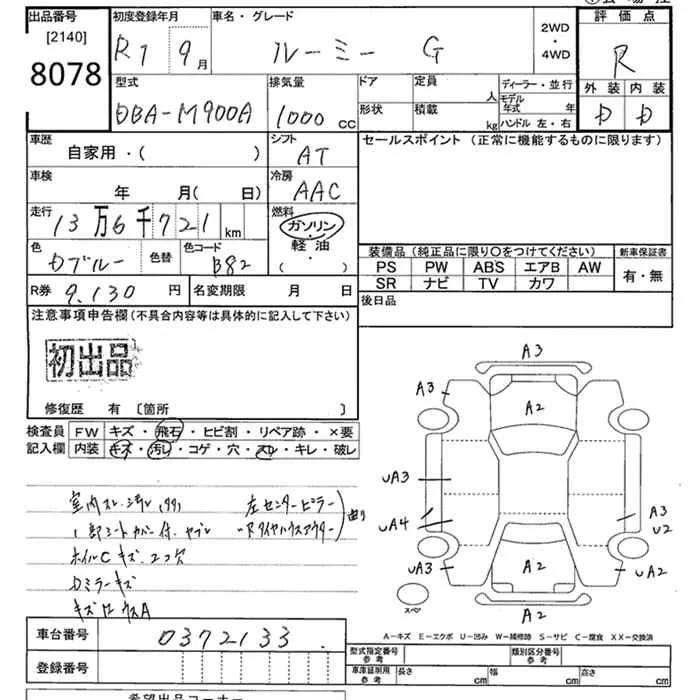 出品番号 初度登録年月 車名・グレード 2WD・4WD 評価点
[2140]
8078
R1 9月 ルーミー G R
型式 排気量 ドア 定員 人 ディーラー・並行 外装 内装
DBA-M900A 1000cc 形状 積載 kg モデル年式 年 ハンドル 左・右 D D
車歴 シフト セールスポイント (正常に機能するものに限ります)
自家用・( ) AT
車検 冷房
年 月(日) AAC
走行 燃料
13万6千721km ガソリン・軽油・( )
色 色替 色コード 装備品(純正品に限り〇をつけてください) 新車保証書
Dブルー B82 PS PW ABS エアB AW 有・無
SR ナビ TV カワ
R券 9,130円 名変期限 月 日 後日品
注意事項申告欄(不具合内容等は具体的に記入して下さい)
初出品
修復歴 有 〔箇所 〕
検査員 FW キズ・飛石・ヒビ割・リペア跡・×要
記入欄 内装 キズ・汚レ・コゲ・穴・スレ・キレ・破レ
左センターピラー
ホイルCキズ
Dミラーキズ
A3
A3
A2
uA3
uA4
A3
U2
uA3
A2
uA2
スペア
A2
A-キズ E-エクボ U-凹み W-補修跡 S-サビ C-腐食 XX-交換済
車台番号 0372133
登録番号
型式指定番号 参考 類別区分番号 参考
車庫証明用 参考 長さ cm 幅 cm 高さ cm
希望出品コーナー